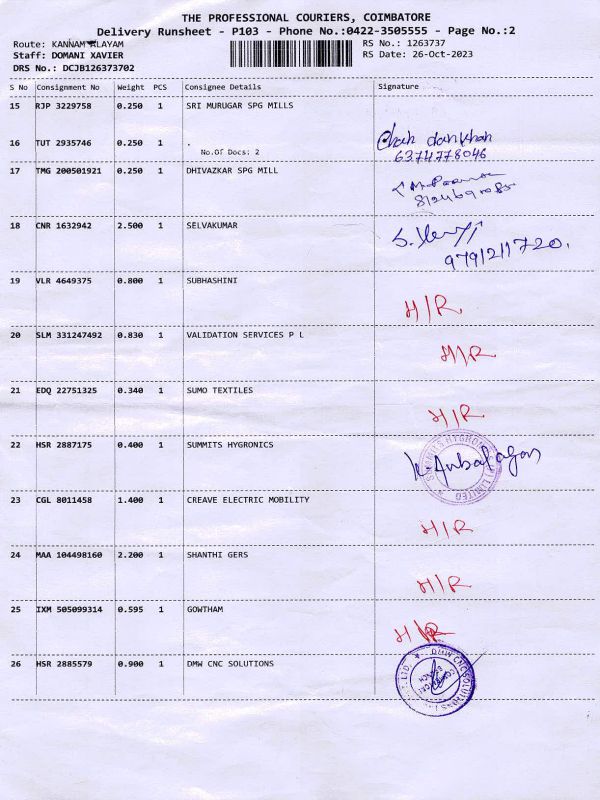 THE PROFESSIONAL COURIERS, COIMBATORE
Delivery Runsheet - P103 - Phone No.:0422-3505555 - Page No.:2
Route: KANNAMPALAYAM RS No.: 1263737
Staff: DOMANI XAVIER RS Date: 26-Oct-2023
DRS No.: DCJB126373702
S No Consignment No Weight PCS Consignee Details Signature
15 RJP 3229758 0.250 1 SRI MURUGAR SPG MILLS
16 TUT 2935746 0.250 1 .
No.Of Docs: 2
6374778046
17 TMG 200501921 0.250 1 DHIVAZKAR SPG MILL
18 CNR 1632942 2.500 1 SELVAKUMAR
9791211720.
19 VLR 4649375 0.800 1 SUBHASHINI
H/R
20 SLM 331247492 0.830 1 VALIDATION SERVICES P L
H/R
21 EDQ 22751325 0.340 1 SUMO TEXTILES
H/R
22 HSR 2887175 0.400 1 SUMMITS HYGRONICS
K. Anbalagan
SUMMITS HYGRONICS LIMITED
23 CGL 8011458 1.400 1 CREAVE ELECTRIC MOBILITY
H/R
24 MAA 104498160 2.200 1 SHANTHI GERS
H/R
25 IXM 505099314 0.595 1 GOWTHAM
H/R
26 HSR 2885579 0.900 1 DMW CNC SOLUTIONS
DMW CNC SOLUTIONS